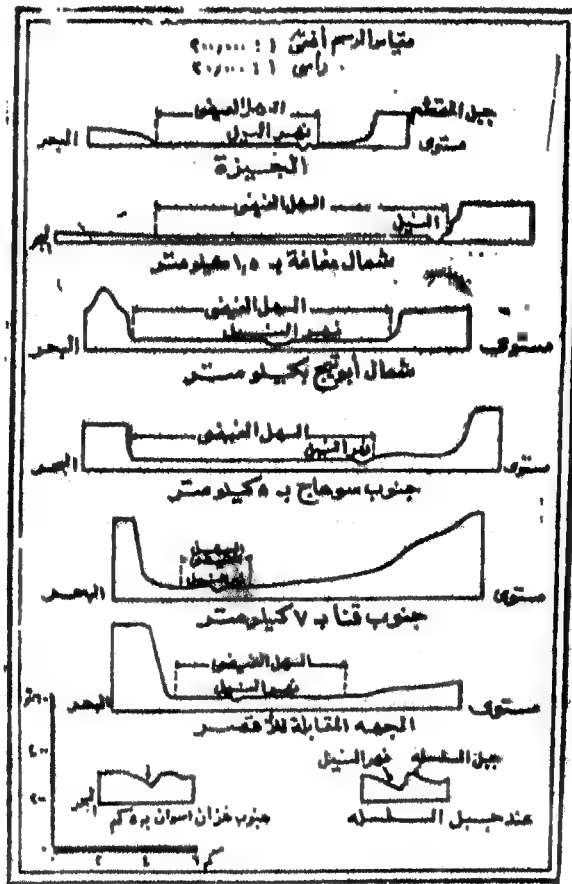 مقياس الرسم أفقى ١ : ٢٠٠,٠٠٠
رأسى ١ : ٢٠,٠٠٠
جبل المقطم
السهل الفيضى
نهر النيل
مستوى البحر
الجيزة
السهل الفيضى
النيل
البحر
شمال مغاغة بـ ١,٥ كيلو متر
السهل الفيضى
نهر النيل
مستوى البحر
شمال أبوتيج بكيلو متر
السهل الفيضى
نهر النيل
مستوى البحر
جنوب سوهاج بـ ٥ كيلو متر
السهل
مستوى البحر
جنوب قنا بـ ٧ كيلو متر
السهل الفيضى
نهر النيل
مستوى البحر
الجهه المقابلة للأقصر
٤٠٠
٢٠٠
جبل السلسله
نهر النيل
عند جبل السلسله
البحر
جنوب خزان اسوان بـ ٥ كم
٠ ٢ ٤ ٦ كم